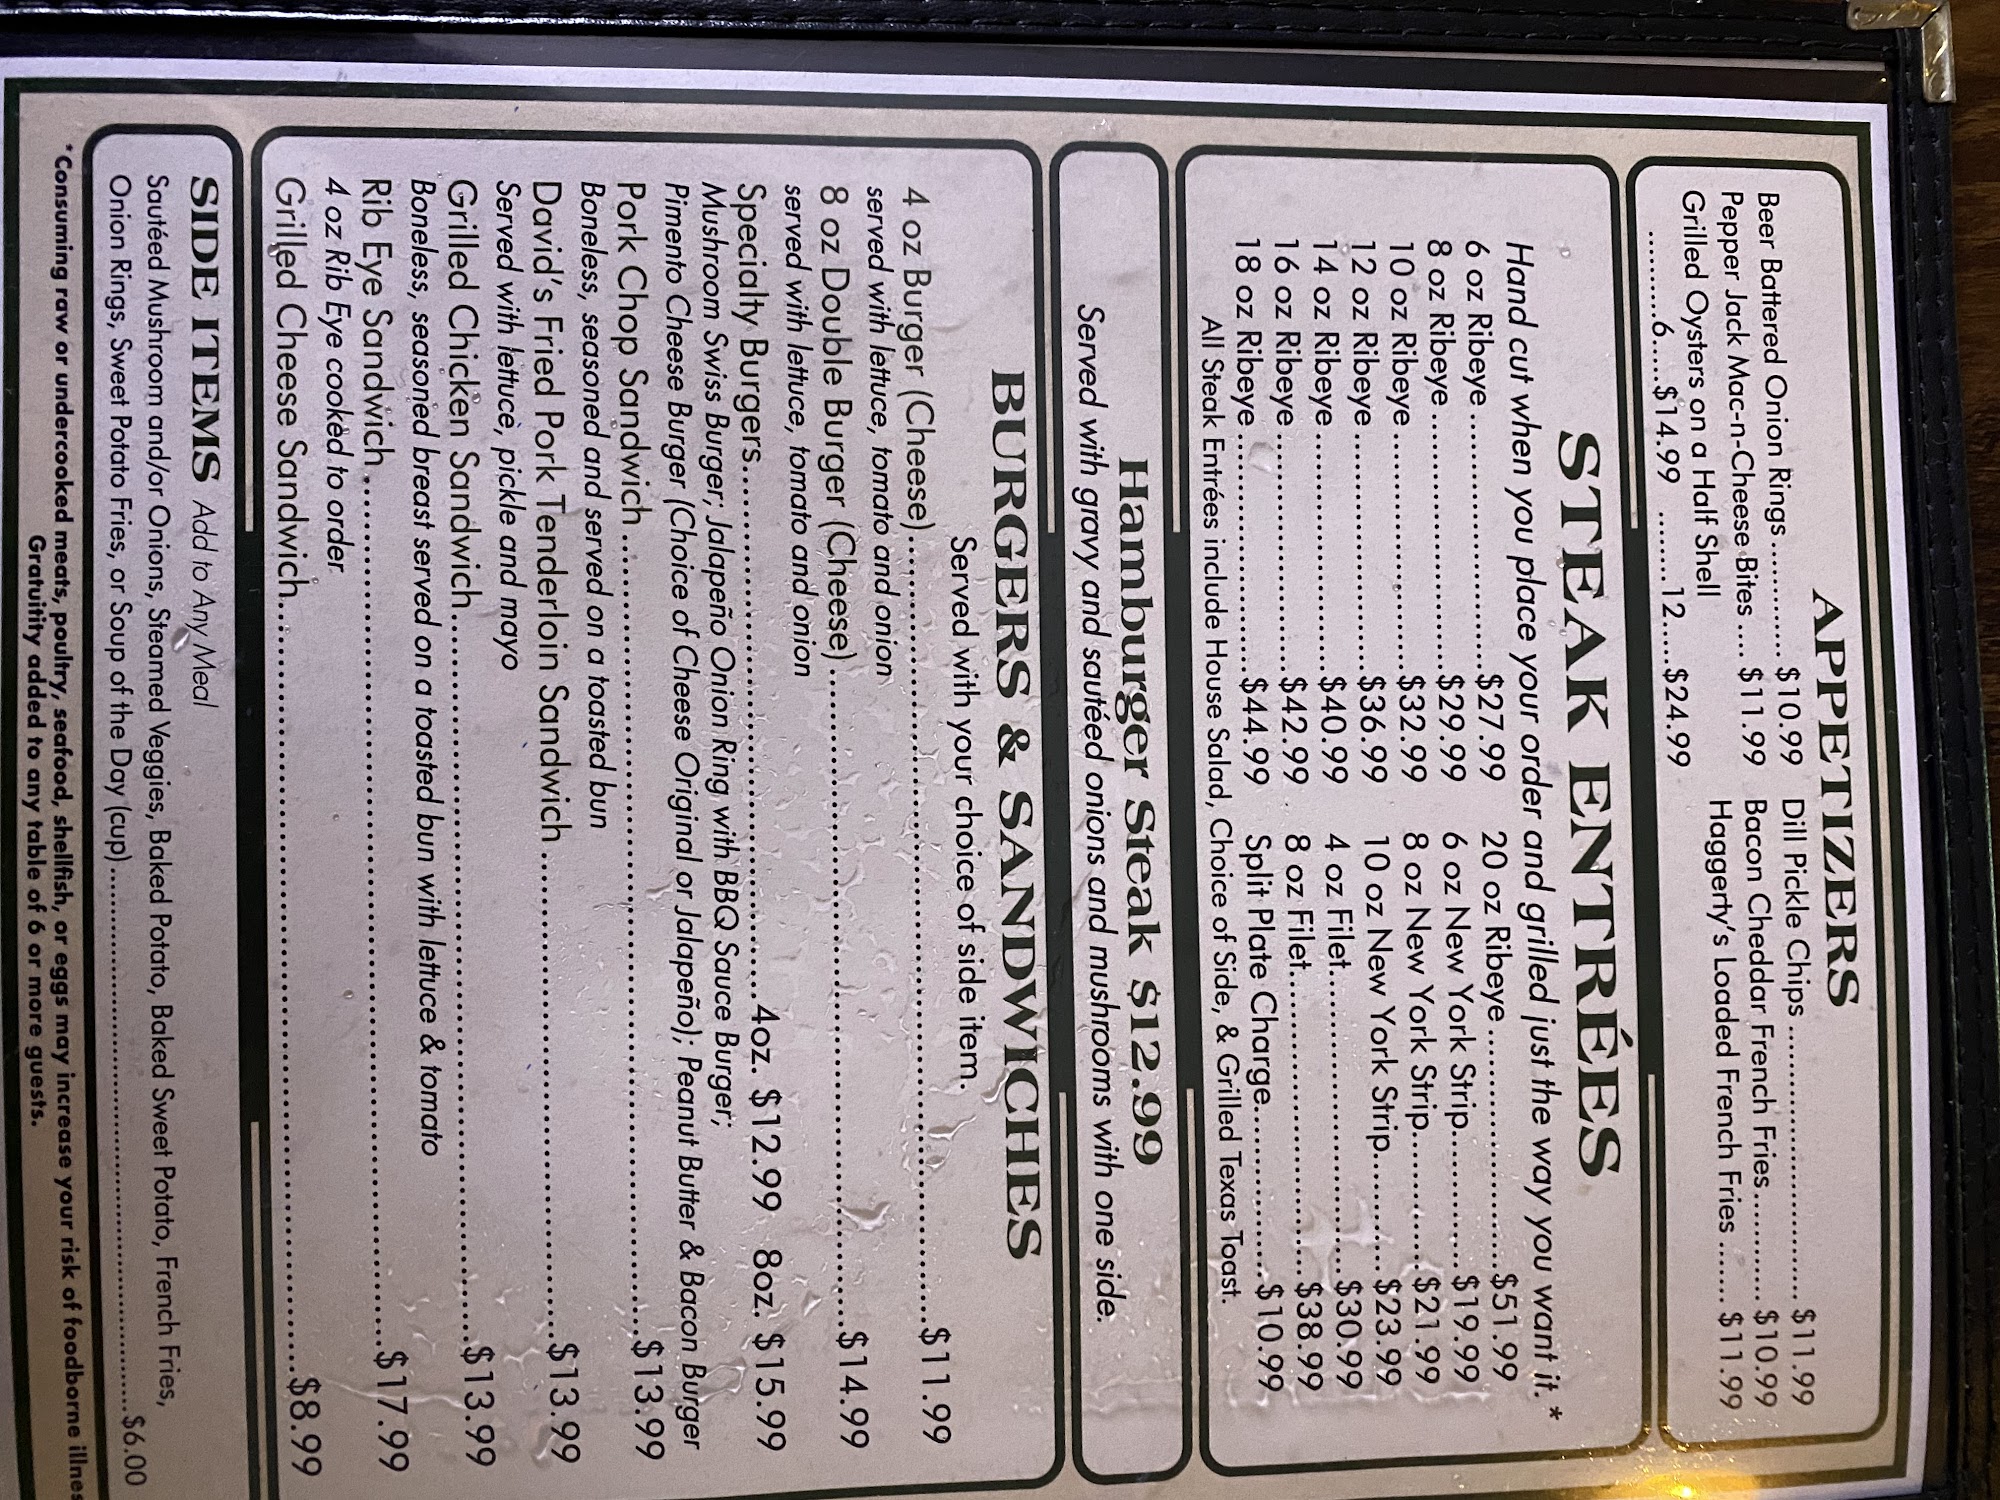 APPETIZERS
Beer Battered Onion Rings ............ $10.99
Pepper Jack Mac-n-Cheese Bites .... $11.99
Grilled Oysters on a Half Shell
..........6.....$14.99 .......12....$24.99
Dill Pickle Chips ............................ $11.99
Bacon Cheddar French Fries........... $10.99
Haggerty's Loaded French Fries ...... $11.99
STEAK ENTRÉES
Hand cut when you place your order and grilled just the way you want it. *
6 oz Ribeye ..........................$27.99
8 oz Ribeye ..........................$29.99
10 oz Ribeye ........................$32.99
12 oz Ribeye ........................$36.99
14 oz Ribeye ........................$40.99
16 oz Ribeye ........................$42.99
18 oz Ribeye ........................$44.99
20 oz Ribeye .........................$51.99
6 oz New York Strip..............$19.99
8 oz New York Strip..............$21.99
10 oz New York Strip............$23.99
4 oz Filet..............................$30.99
8 oz Filet..............................$38.99
Split Plate Charge.................$10.99
All Steak Entrées include House Salad, Choice of Side, & Grilled Texas Toast.
Hamburger Steak $12.99
Served with gravy and sautéed onions and mushrooms with one side.
BURGERS & SANDWICHES
Served with your choice of side item.
4 oz Burger (Cheese)..........................................................$11.99
served with lettuce, tomato and onion
8 oz Double Burger (Cheese) ................................................$14.99
served with lettuce, tomato and onion
Specialty Burgers.......................................4oz. $12.99 8oz. $15.99
Mushroom Swiss Burger; Jalapeño Onion Ring with BBQ Sauce Burger;
Pimento Cheese Burger (Choice of Cheese Original or Jalapeño); Peanut Butter & Bacon Burger
Pork Chop Sandwich ..........................................................$13.99
Boneless, seasoned and served on a toasted bun
David's Fried Pork Tenderloin Sandwich ...................................$13.99
Served with lettuce, pickle and mayo
Grilled Chicken Sandwich.....................................................$13.99
Boneless, seasoned breast served on a toasted bun with lettuce & tomato
Rib Eye Sandwich ..............................................................$17.99
4 oz Rib Eye cooked to order
Grilled Cheese Sandwich......................................................$8.99
SIDE ITEMS Add to Any Meal
Sautéed Mushroom and/or Onions, Steamed Veggies, Baked Potato, Baked Sweet Potato, French Fries,
Onion Rings, Sweet Potato Fries, or Soup of the Day (cup)...........................................$6.00
*Consuming raw or undercooked meats, poultry, seafood, shellfish, or eggs may increase your risk of foodborne illnes
Gratuitiy added to any table of 6 or more guests.